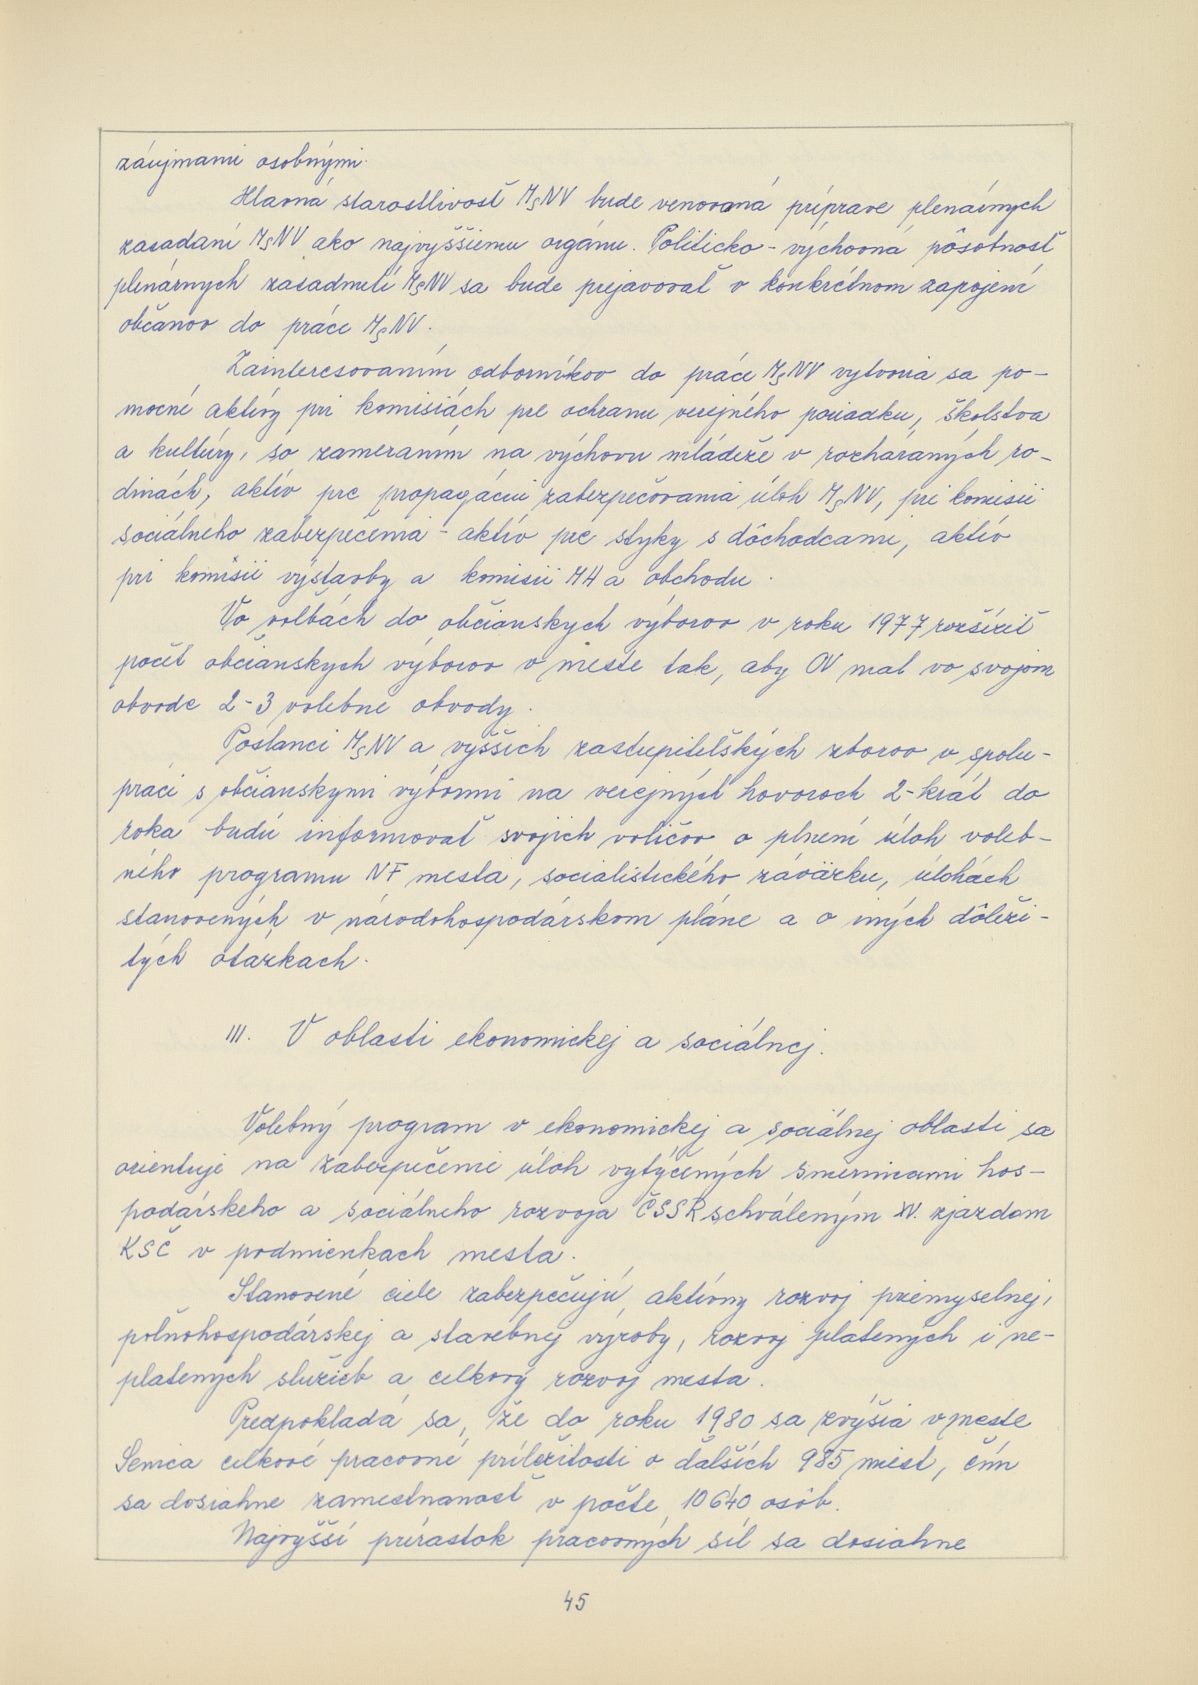 záujmami osobnými.
Hlavná starostlivosť MsNV bude venovaná príprave plenárnych
zasadaní MsNV ako najvyššiemu orgánu. Politicko-výchovná pôsobnosť
plenárnych zasadnutí MsNV sa bude prejavovať v konkrétnom zapojení
občanov do práce MsNV.
Zainteresovaním odborníkov do práce MsNV vytvoria sa po-
mocné aktívy pri komisiách pre ochranu verejného poriadku, školstva
a kultúry, so zameraním na výchovu mládeže v rozháraných ro-
dinách, aktív pre propagáciu zabezpečovania úloh MsNV, pri komisii
sociálneho zabezpečenia - aktív pre styky s dôchodcami, aktív
pri komisii výstavby a komisii MH a obchodu.
Vo voľbách do občianskych výborov v roku 1977 rozšíriť
počet občianskych výborov v meste tak, aby OV mal vo svojom
obvode 2-3 volebné obvody.
Poslanci MsNV a vyšších zastupiteľských zborov v spolu-
práci s občianskymi výbormi na verejných hovoroch 2-krát do
roka budú informovať svojich voličov o plnení úloh voleb-
ného programu NF mesta, socialistického záväzku, úlohách
stanovených v národohospodárskom pláne a o iných dôleži-
tých otázkach.
III. V oblasti ekonomickej a sociálnej.
Volebný program v ekonomickej a sociálnej oblasti sa
orientuje na zabezpečenie úloh vytýčených smernicami hos-
podárskeho a sociálneho rozvoja ČSSR schváleným XV. zjazdom
KSČ v podmienkach mesta.
Stanovené ciele zabezpečujú aktívny rozvoj priemyselnej,
poľnohospodárskej a stavebnej výroby, rozvoj platených i ne-
platených služieb a celkový rozvoj mesta.
Predpokladá sa, že do roku 1980 sa zvýšia v meste
Senica celkové pracovné príležitosti o ďalších 985 miest, čím
sa dosiahne zamestnanosť v počte 10640 osôb.
Najvyšší prírastok pracovných síl sa dosiahne
45